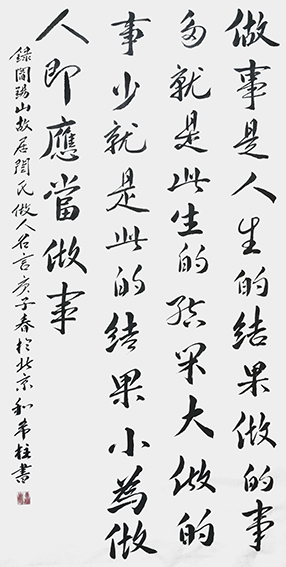 做事是人生的結果做的事
多就是此生的結果大做的
事少就是此的結果小為做
人即應當做事
錄閻錫山故居閻氏做人名言庚子春於北京和柱書